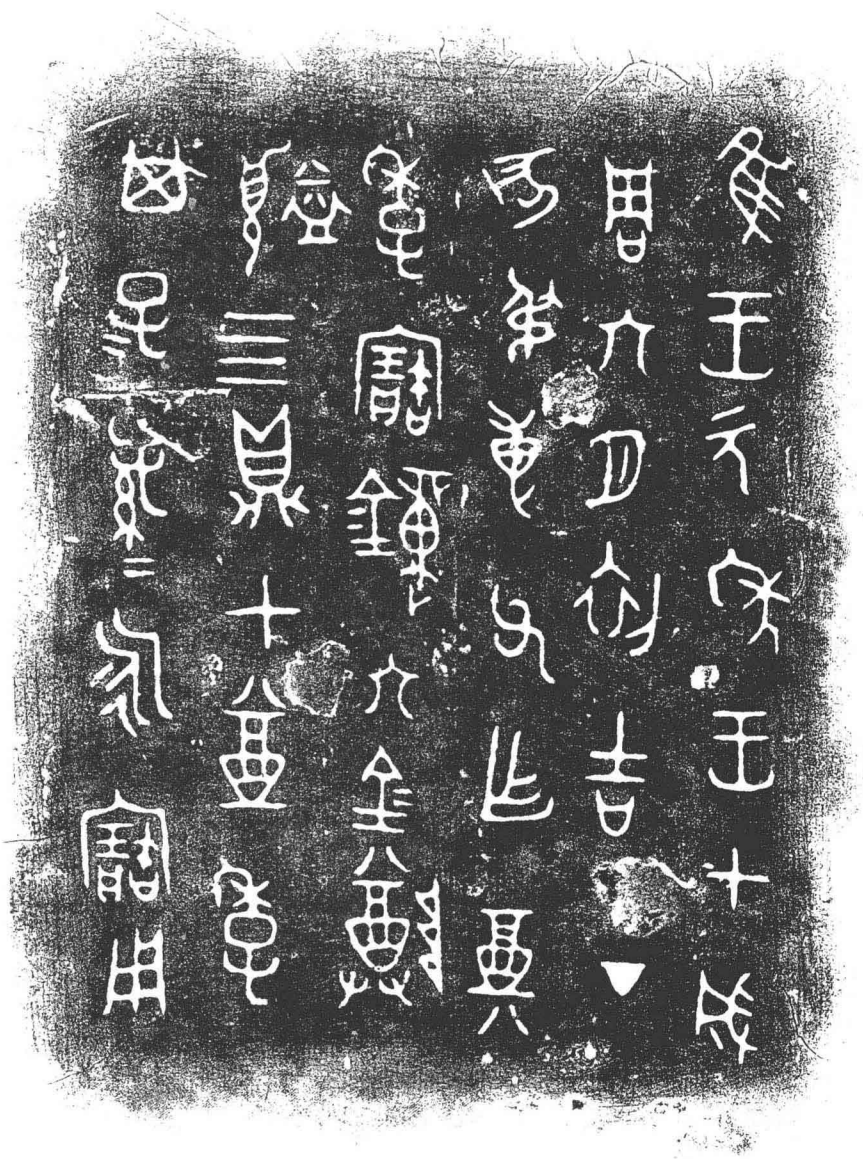 隹王元年王才成
周六月初吉丁
亥弔專父乍奠
季寶鐘六金尊
盨四鼎七奠季
其子=孫=永寶用